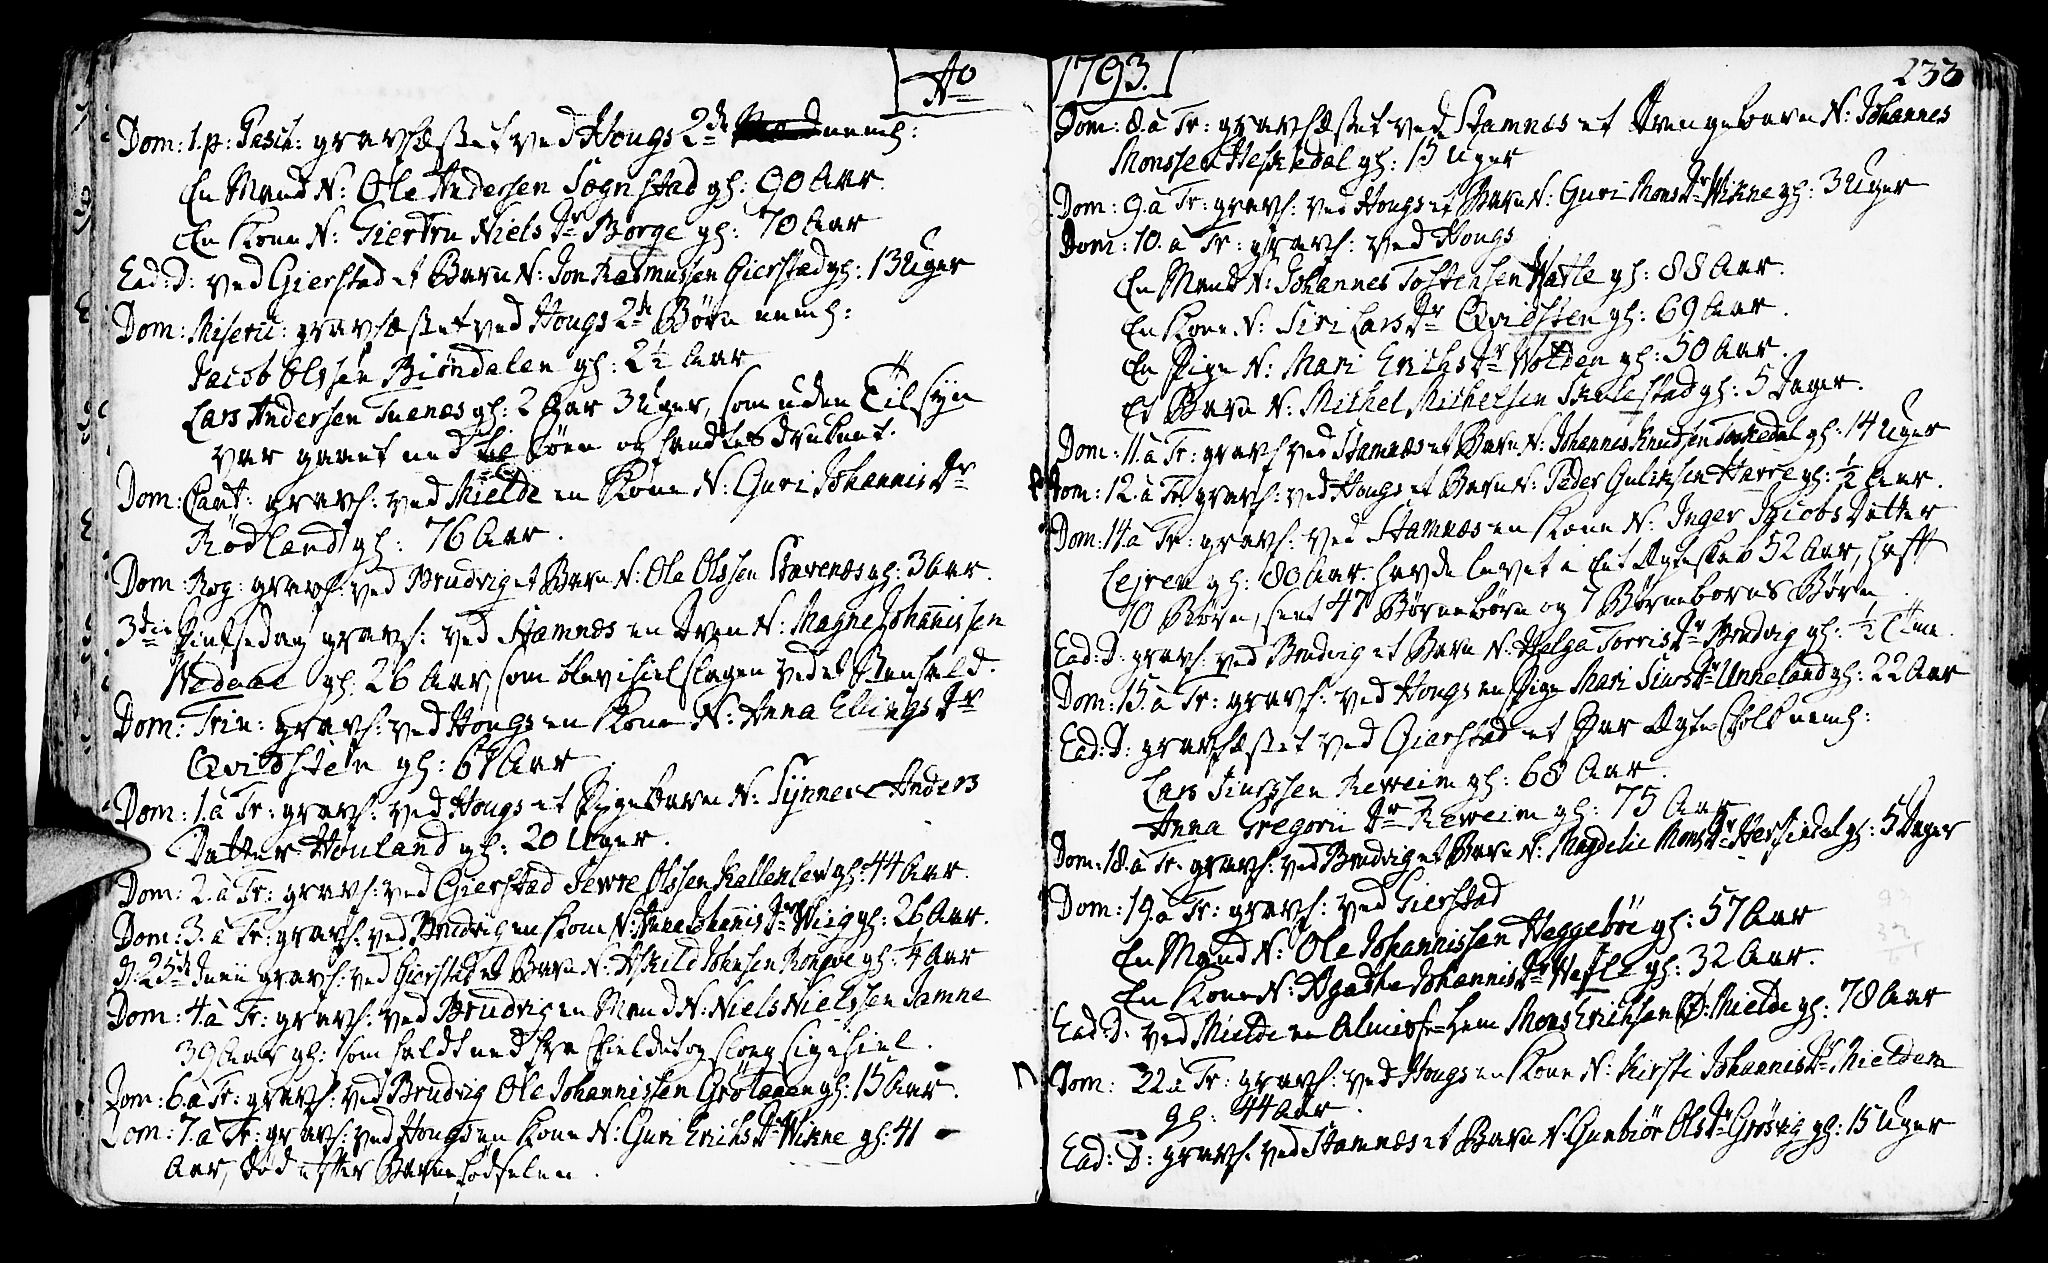 Ao
Dom: 1. p: Pasch: gravfæstet ved Hougs 2de neml:
En Mand N: Ole Andersen Sognstad gl: 90 Aar.
En Kone N: Giertru Niels Dr Borge gl: 70 Aar
Ead: D: ved Gierstad et Barn N: Jon Rasmussen Gierstad gl: 13 Uger
Dom: Miseric: gravfæstet ved Hougs 2de Börn neml:
Jacob Olssen Biöndalen gl: 2½ Aar
Lars Andersen Tuenæs gl: 2 Aar 3 Uger, som uden Tilsyn
var gaaet ned til Söen og fandtes druknet.
Dom: Cant: gravf: ved Mielde en Kone N: Guri Johannis Dr
Rödland gl: 76 Aar.
Dom: Rog: gravf: ved Brudvig et Barn N: Ole Olssen Stavenæs gl: 3 Aar.
3die Pintsedag gravf: ved Stamnæs en Dreng N: Magne Johannissen
Wedaae gl: 26 Aar, som blev ihielslagen ved et Steenfald.
Dom: Trin: gravf: ved Hougs en Kone N: Anna Ellings Dr
Qvidstein gl: 61 Aar
Dom: 1. à Tr: gravf: ved Hougs et Pigebarn N: Synneve Anders
Datter Houland gl: 20 Uger.
Dom: 2. à Tr: gravf: ved Gierstad Sewre Olssen Kallenlev gl: 44 Aar.
Dom: 3. à Tr: gravf: ved Brudvig en Kone N: Johannis Dr Wiig gl: 26 Aar.
D: 25de Junii gravf: ved Gierstad et Barn N: Askild Johnsen Rongve gl: ¼ Aar
Dom: 4. à Tr: gravf: ved Brudvig en Mand N: Niels Nielssen Samne
39 Aar gl: som faldt ned fra Fieldet og slog sig ihiel.
Dom: 6. à Tr: gravf: ved Brudvig Ole Johannissen Gröt gl: 15 Aar.
Dom: 7. à Tr: gravf: ved Hougs en Kone N: Guri Erichs Dr Wikne gl: 41
Aar, död efter Barnefödselen.
1793.
233
Dom: 8. à Tr: gravfæstet ved Stamnæs et Drengebarn N: Johannes
Monssen Heskiedal gl: 15 Uger
Dom: 9. à Tr: gravf: ved Hougs et Barn N: Guri Mons Dr Wikne gl: 3 Uger
Dom: 10. à Tr: gravf: ved Hougs
En Mand N: Johannes Tostensen Watle gl: 88 Aar.
En Kone N: Siri Lars Dr Qvidsten gl: 69 Aar.
En Pige N: Mari Erichs Dr Wolden gl: 50 Aar.
Et Barn N: Mikkel Mikkelsen Skulestad gl: 5 Dager.
Dom: 11. à Tr: gravf: ved Stamnæs et Barn N: Johannes Knudsen Taskedal gl: 14 Uger
Dom: 12. à Tr: gravf: ved Hougs et Barn N: Peder Gulichsen Herre gl: ½ Aar.
Dom: 14. à Tr: gravf: ved Stamnæs en Kone N: Inger Jacobs Datter
Leiren gl: 80 Aar. havde levet i Ent Ægteskab 52 Aar, haft
10 Börn, samt 47 Börnebörn og 7 Börneborns Börn.
Ead: D: gravf: ved Brudvig et Barn N: Helga Torris Dr Brudvig gl: ½ Time.
Dom: 15. à Tr: gravf: ved Hougs en Pige Mari Siurs Dr Unneland gl: 22 Aar
Ead: D: gravfæstet ved Gierstad et Par Ægte-Folk neml:
Lars Siurssen Reweim gl: 68 Aar.
Anna Gregorii Dr Reweim gl: 75 Aar.
Dom: 18. à Tr: gravf: ved Brudvig et Barn N: Magdelie Mons Dr Hersindal gl: 5 Dager
Dom: 19. à Tr: gravf: ved Gierstad
En Mand N: Ole Johannissen Heggeböe gl: 57 Aar
En Kone N: Agathe Johannis Dr Watle gl: 32 Aar.
Ead: D: ved Mielde en Almisse-Lem Mons Erichsen Mielde gl: 78 Aar
Dom: 22. à Tr: gravf: ved Hougs en Kone N: Kirsti Johannis Dr Mieldem
gl: 44 Aar.
Ead: D: gravf: ved Stamnæs et Barn N: Gunbiör Ols Dr Grösvig gl: 15 Uger